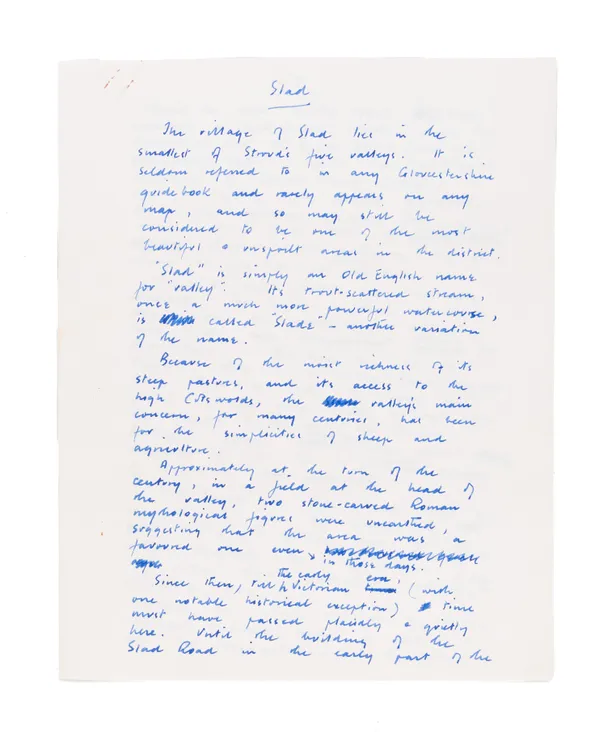 Slad
The village of Slad lies in the
smallest of Stroud's five valleys. It is
seldom referred to in any Gloucestershire
guidebook and rarely appears on any
map, and so may still be
considered to be one of the most
beautiful & unspoilt areas in the district.
"Slad" is simply an Old English name
for "valley". Its trout-scattered stream,
once a much more powerful watercourse,
is called "Slade" – another variation
of the name.
Because of the moist richness of its
steep pastures, and its access to the
high Cotswolds, the valley's main
concern, for many centuries, has been
for the simplicities of sheep and
agriculture.
Approximately at the turn of the
century, in a field at the head of
the valley, two stone-carved Roman
mythological figures were unearthed,
suggesting that the area was a
favoured one even
in those days.
the early era,
Since then, till Victorian (with
one notable historical exception) time
must have passed placidly & quietly
here. Until the building of the
Slad Road in the early part of the